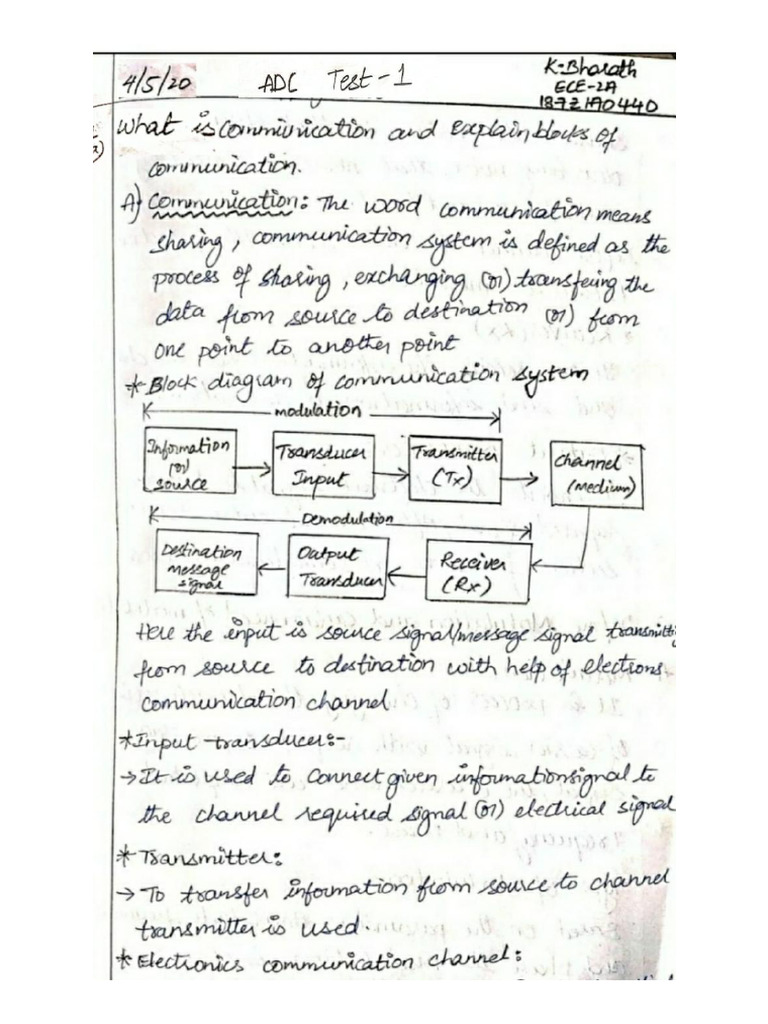 4/5/20 ADC Test-1
K. Bharath
ECE-2A
What is communication and explain blocks of
communication.
A) Communication: The word communication means
sharing, communication system is defined as the
process of sharing, exchanging (or) transfering the
data from source to destination (or) from
one point to another point
* Block diagram of communication system
modulation
Information
(or)
source
Transducer
Input
Transmitter
(Tx)
Channel
(Medium)
Demodulation
Destination
message
signal
Output
Transducer
Receiver
(Rx)
Here the input is source signal/message signal transmitti
from source to destination with help of electrons
communication channel
* Input transducer:-
→ It is used to connect given information signal to
the channel required signal (or) electrical signal
* Transmitter:
→ To transfer information from source to channel
transmitter is used.
* Electronics communication channel: